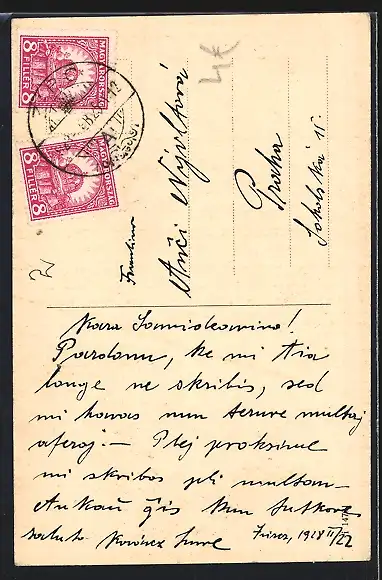 MAGYARORSZÁG
8 FILLÉR 8
MAGYARORSZÁG
8 FILLÉR 8
4€
Fraulino
Anči Nývltová
Praha
Sokolská
Kara Samideanino!
Pardonu, ke mi tia
longe ne skribis, sed
mi havas nun terure multaj
aferoj. — Plej proksime
mi skribos pli multon —
Ankaŭ ĝis kun
saluto Imre
1928 II/22